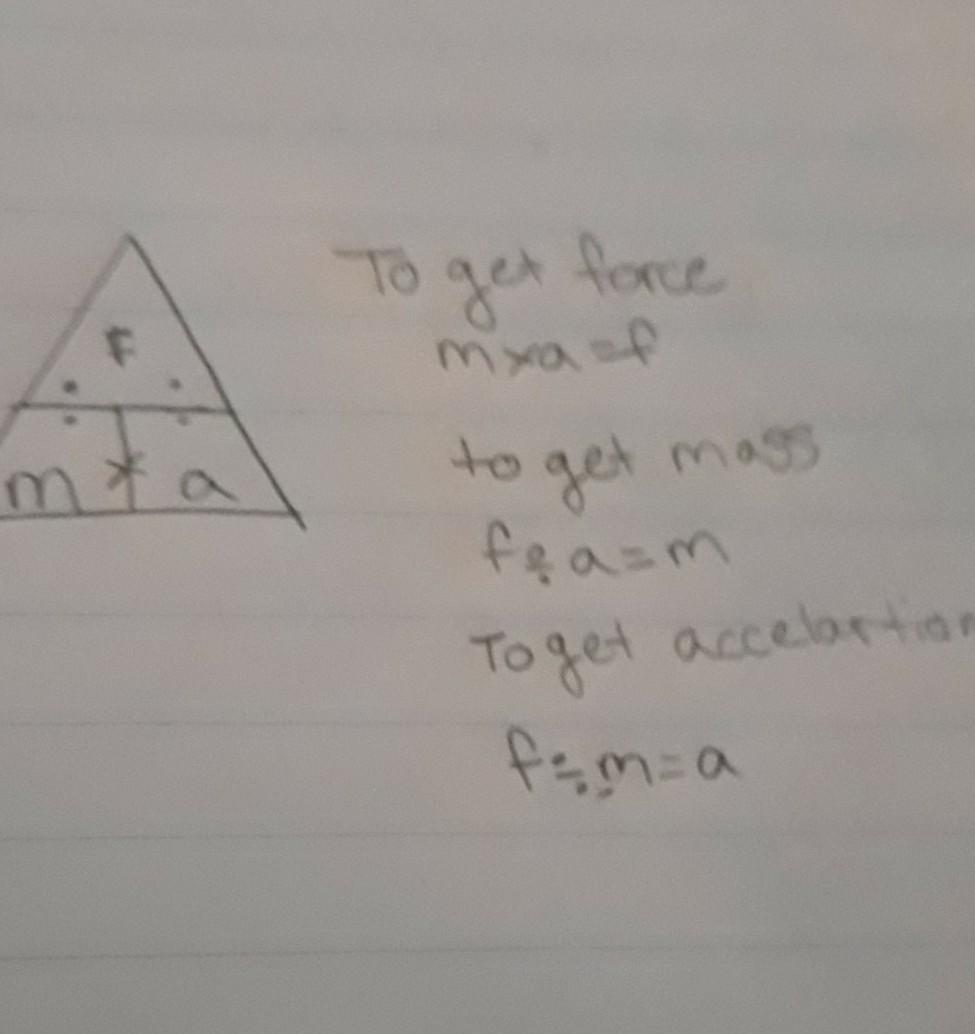 F
m * a
To get force
m×a=f
to get mass
f÷a=m
To get accelartion
f÷m=a